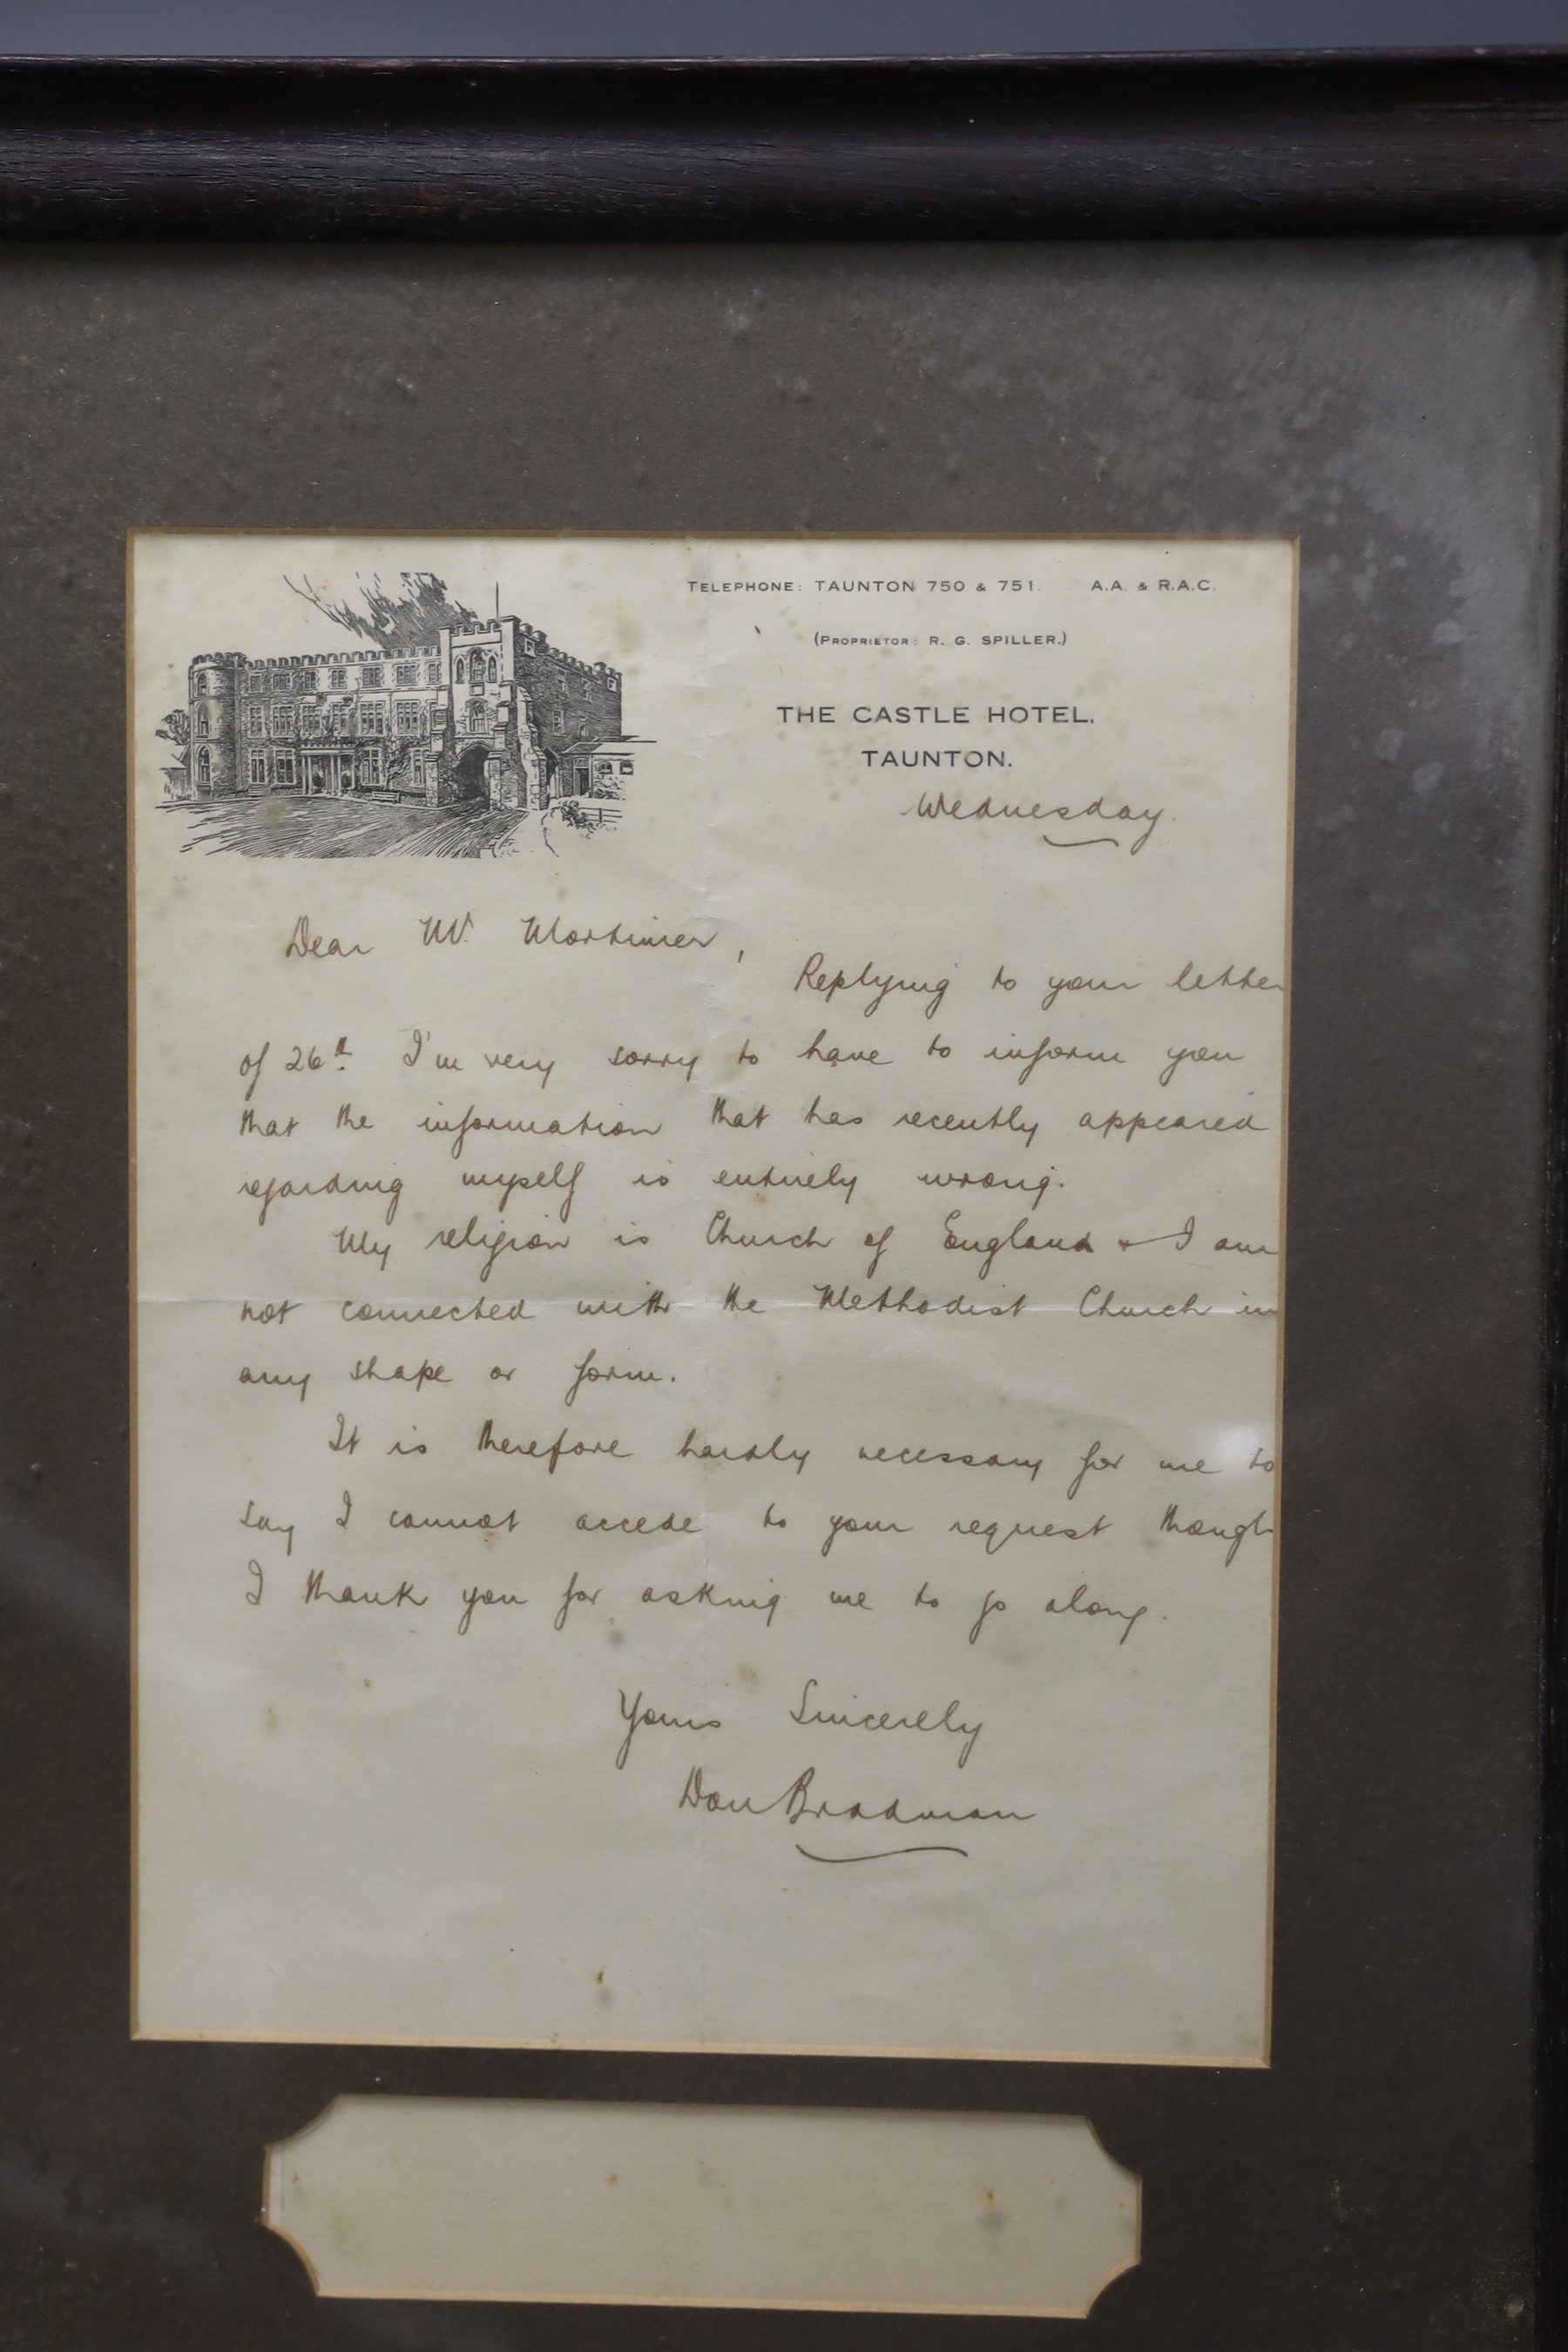 TELEPHONE: TAUNTON 750 & 751. A.A. & R.A.C.
(PROPRIETOR: R. G. SPILLER.)
THE CASTLE HOTEL,
TAUNTON.
Wednesday.
Dear Mr. Mortimer,
Replying to your letter
of 26th. I'm very sorry to have to inform you
that the information that has recently appeared
regarding myself is entirely wrong.
My religion is Church of England & I am
not connected with the Methodist Church in
any shape or form.
It is therefore hardly necessary for me to
say I cannot accede to your request though
I thank you for asking me to go along.
Yours Sincerely
Don Bradman